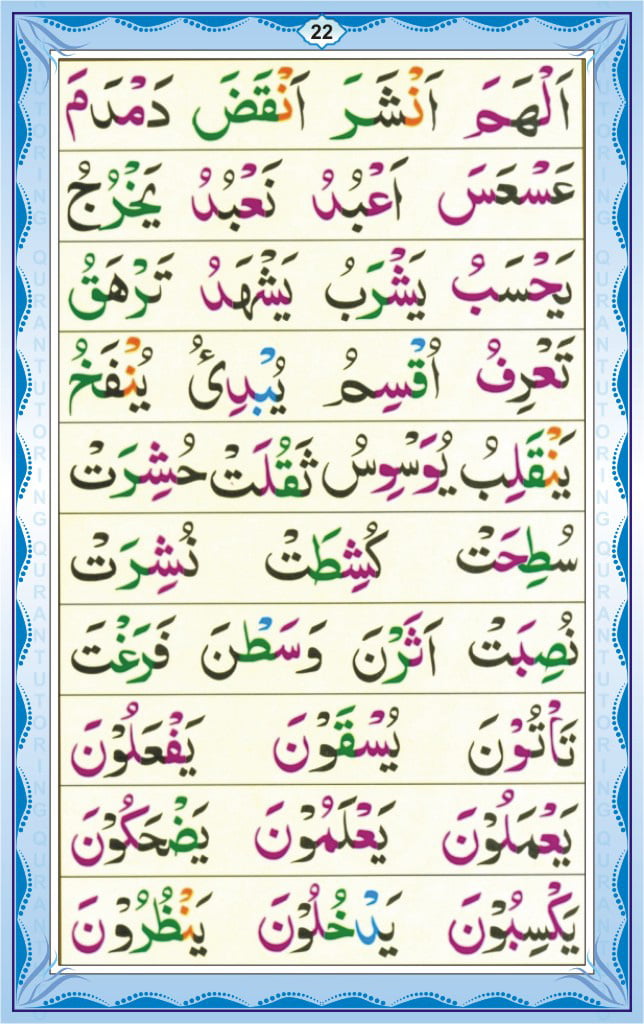 22
اَلْهَمَ اَنْشَرَ اَنْقَضَ دَمْدَمَ
عَسْعَسَ اَعْبُدُ نَعْبُدُ يَخْرُجُ
يَحْسَبُ يَشْرَبُ يَشْهَدُ تَرْهَقُ
تَعْرِفُ اُقْسِمُ يُبْدِئُ يُنْفَخُ
يَنْقَلِبُ يُوَسْوِسُ ثَقُلَتْ حُشِرَتْ
سُطِحَتْ كُشِطَتْ نُشِرَتْ
نُصِبَتْ اَثَرْنَ وَسَطْنَ فَرَغْتَ
تَأْتُوْنَ يُسْقَوْنَ يَفْعَلُوْنَ
يَعْمَلُوْنَ يَعْلَمُوْنَ يَضْحَكُوْنَ
يَكْسِبُوْنَ يَدْخُلُوْنَ يَنْظُرُوْنَ
QURANTUTORING QURANTUTORING